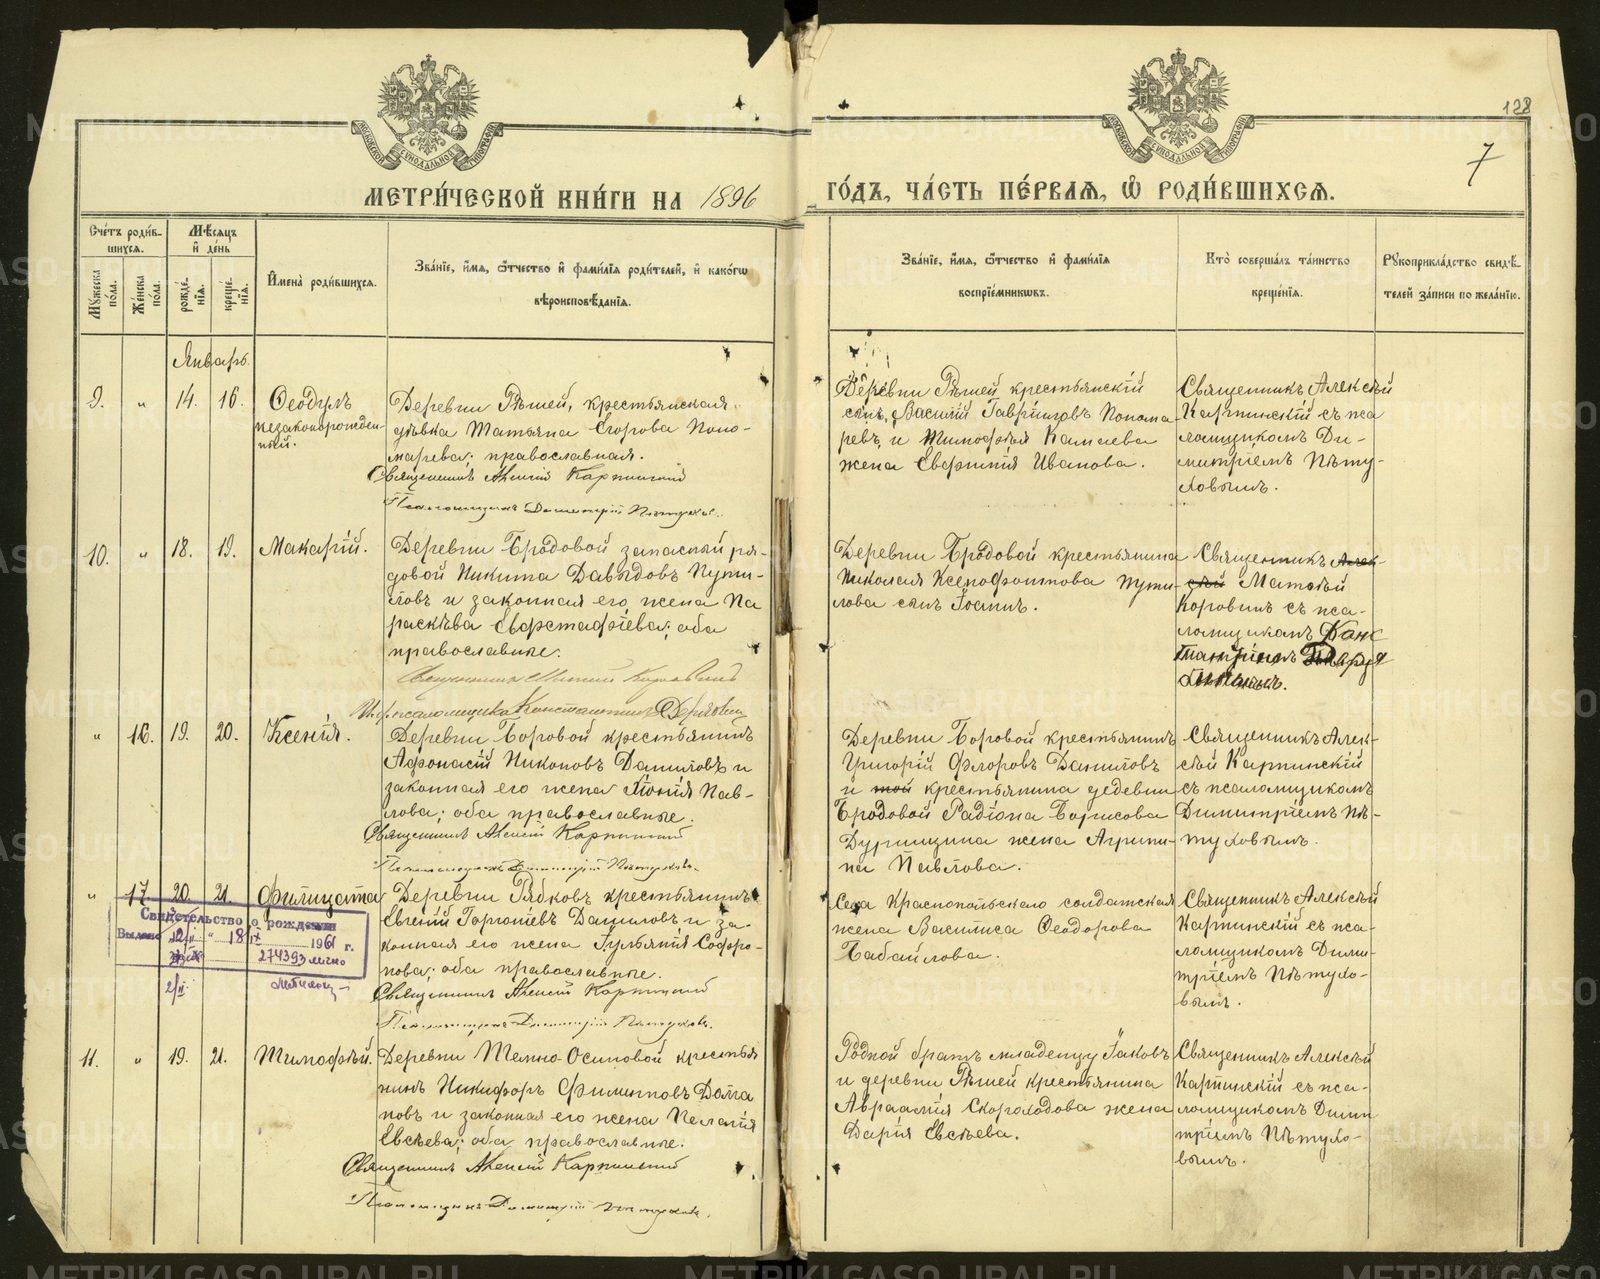 128
7
МЕТРИ́ЧЕСКОЙ КНИ́ГИ НА 1896 ГО́ДЪ, ЧА́СТЬ ПЕ́РВАѦ, Ѿ РОДИ́ВШИХСѦ.
Сче́тъ роди́в-
шихсѧ.
Мꙋ́жеска по́ла.
Же́нска по́ла.
Мѣ́сѧцъ
и҆ де́нь
рожде́-
нїѧ.
креще́-
нїѧ.
И҆мена̀ роди́вшихсѧ.
Зва́нїе, и҆́мѧ, ѻ҆́тчество и҆ фами́лїѧ роди́телей, и҆ како́гѡ
вѣроисповѣ́данїѧ.
Зва́нїе, и҆́мѧ, ѻ҆́тчество и҆ фами́лїѧ
воспрїе́мникѡвъ.
Кто̀ соверша́лъ та́инство
креще́нїѧ.
Рꙋкоприкла́дство свидѣ́-
телей за́писи по жела́нїю.
Январь.
9. " 14. 16.
Ѳеодулъ
незаконорожден-
ный.
Деревни Рѣшей, крестьянская
дѣвка Татьяна Егорова Поно-
марева; православная.
Священникъ Алексій Карпинскій
Псаломщикъ Димитрій Пѣтуховъ.
Деревни Рѣшей крестьянскій
сынъ, Василій Гавріиловъ Понома
ревъ и Тимофѣя Камаева
жена Евфимія Иванова.
Священникъ Алексѣй
Карпинскій съ пса
ломщикомъ Ди-
митріемъ Пѣту-
ховымъ.
10. " 18. 19.
Макарій.
Деревни Бродовой запасный ря-
довой Никита Давыдовъ Пути-
ловъ и законная его жена Па
раскѣва Евфстафіева; оба
православные.
Деревни Бродовой крестьянина
Николая Ксенофонтова Пути-
лова сынъ Іоаннъ.
Священникъ Алек-
сѣй Матѳѣй
Коровинъ съ пса-
ломщикомъ Конс
" 16. 19. 20.
Ксенія.
Деревни Боровой крестьянинъ
Афонасій Никоновъ Даниловъ и
законная его жена Іонія Пав-
лова; оба православные.
Священникъ Алексій Карпинскій
Псаломщикъ Димитрій Пѣтуховъ.
Деревни Боровой крестьянинъ
Григорій Флоровъ Даниловъ
и той крестьянина дедевни
Бродовой Радіона Борисова
Дурницина жена Агрипи-
на Павлова.
Священникъ Алек-
сѣй Карпинскій
съ псаломщикомъ
Димитріемъ Пѣ-
туховымъ.
" 17. 20. 21.
Филицата
Деревни Рябковъ крестьянинъ
Евгеній Горгоніевъ Даниловъ и за-
конная его жена Гульянія Софро-
нова; оба православные.
Священникъ Алексій Карпинскій
Псаломщикъ Димитрій Пѣтуховъ.
Села Краснопольскаго солдатская
жена Василиса Ѳеодорова
Бабаилова.
Священникъ Алексѣй
Карпинскій съ пса-
ломщикомъ Дими-
тріемъ Пѣтухо-
вымъ.
Свидетельство о рождении
Выдано 18 IX 1961 г.
274393 лично
11. " 19. 21.
Тимофѣй.
Деревни Темно-Осиновой крестья
нинъ Никифоръ Филипповъ Долга
новъ и законная его жена Пелагія
Евсѣева; оба православные.
Священникъ Алексій Карпинскій
Псаломщикъ Димитрій Пѣтуховъ.
Родной братъ младенцу Іаковъ
и деревни Рѣшей крестьянина
Авраамія Скороходова жена
Дарія Евсѣева.
Священникъ Алексѣй
Карпинскій съ пса-
ломщикомъ Дими
тріемъ Пѣтухо-
вымъ.
METRIKI.GASO-URAL.RU